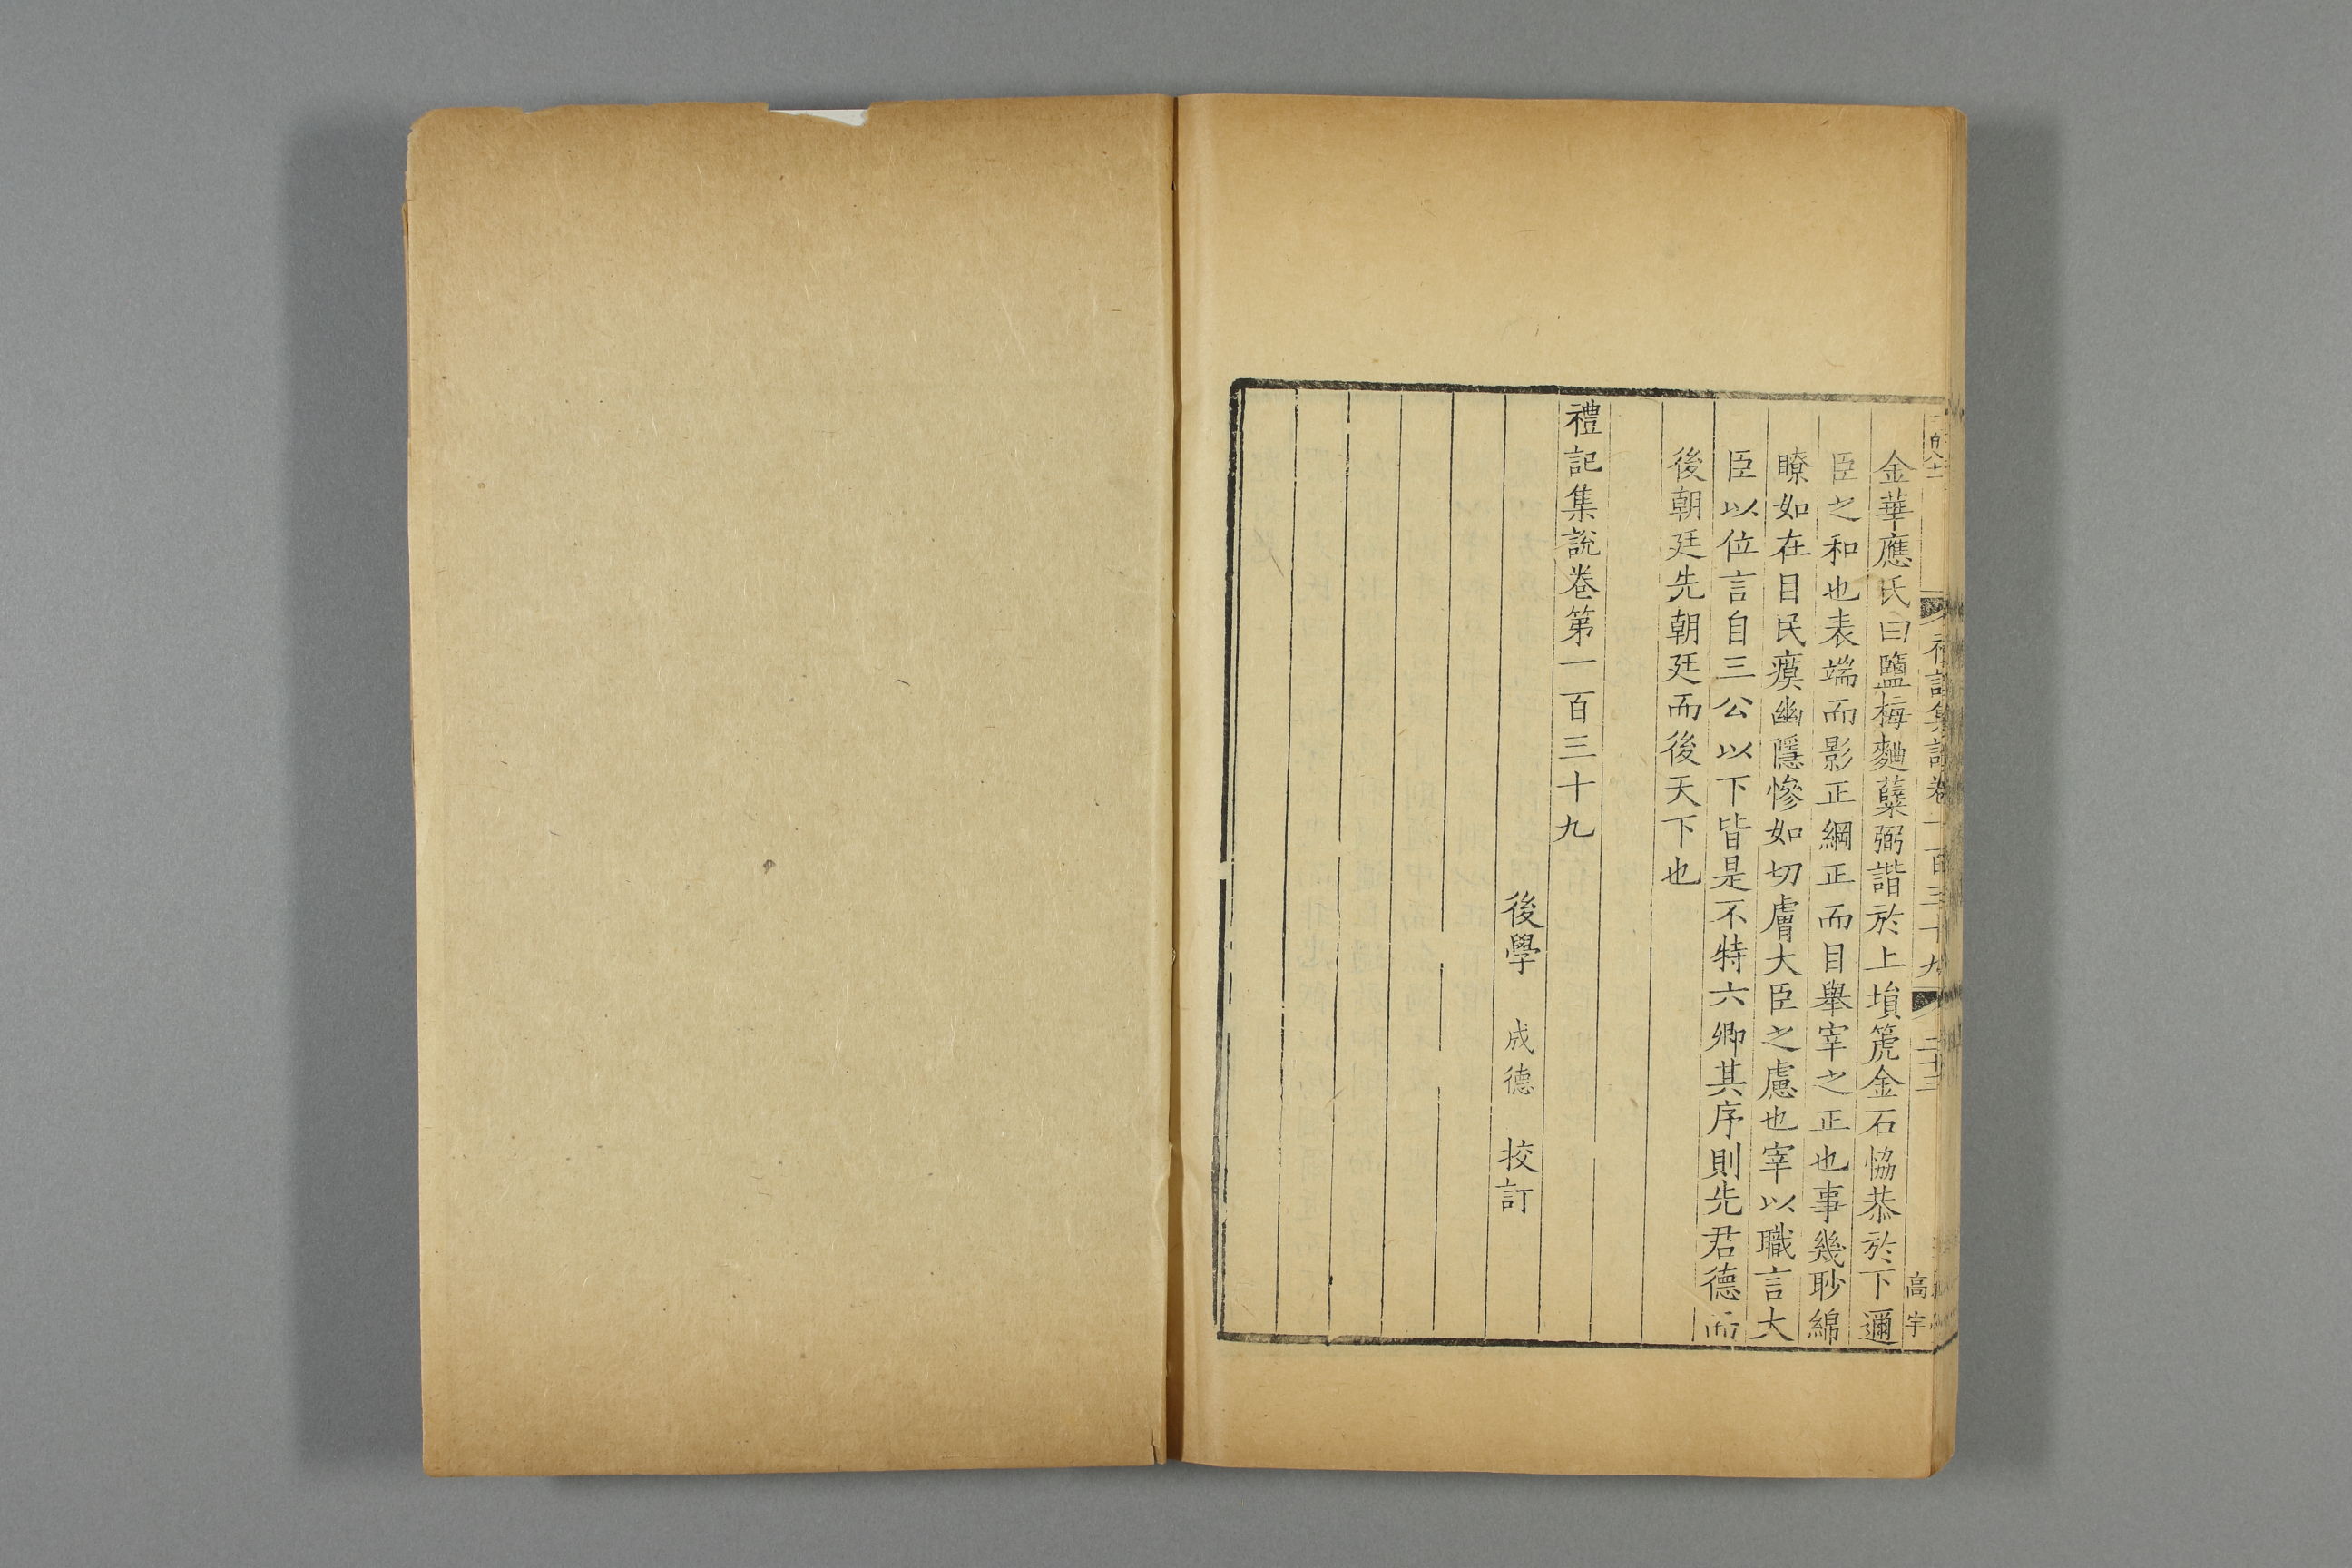 禮記集說卷一百三十九
二十三
高宇
金華應氏曰鹽梅麯糵弼諧於上塤篪金石恊恭於下邇
臣之和也表端而影正綱正而目舉宰之正也事幾眇綿
瞭如在目民瘼幽隱慘如切膚大臣之慮也宰以職言大
臣以位言自三公以下皆是不特六卿其序則先君德而
後朝廷先朝廷而後天下也
禮記集說卷第一百三十九
後學 成德 挍訂